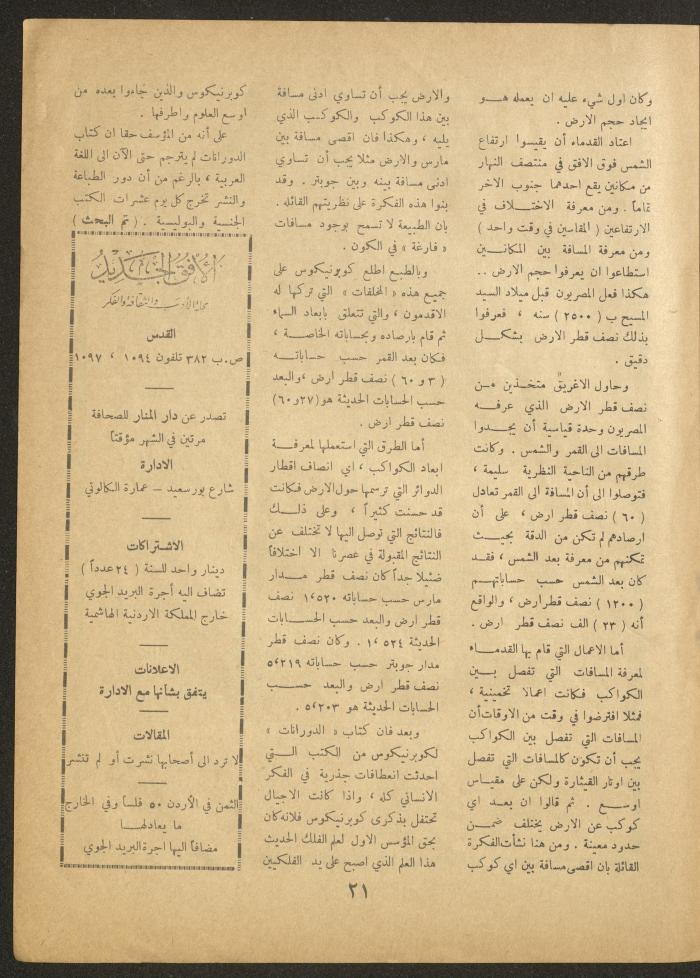 وكان اول شيء عليه ان يعمله هــو
ايجاد حجم الارض .
اعتاد القدماء أن يقيسوا ارتفاع
الشمس فوق الافق في منتصف النهار
من مكانين يقع احدهما جنوب الاخر
تماماً . ومن معرفة الاختــلاف في
الارتفاعين ( المقاسين في وقت واحد )
ومن معرفة المسافة بين المكانــين
استطاعوا ان يعرفوا حجم الارض ..
هكذا فعل المصريون قبل ميلاد السيد
المسيح ب ( ٢٥٠٠ ) سنه ، فعرفوا
بذلك نصف قطر الارض بشكــل
دقيق .
وحاول الاغريق متخــذين مــن
نصف قطر الارض الذي عرفــه
المصريون وحدة قياسية أن يجــدوا
المسافات الى القمر والشمس . وكانت
طرقهم من الناحية النظرية سليمة ،
فتوصلوا الى أن المسافة الى القمر تعادل
( ٦٠ ) نصف قطر ارض ، على أن
ارصادهم لم تكن من الدقة بحيــث
تمكنهم من معرفة بعد الشمس ، فقــد
كان بعد الشمس حسب حساباتهــم
( ١٢٠٠ ) نصف قطر ارض ، والواقع
أنه ( ٢٣ ) الف نصف قطر ارض .
أما الاعمال التي قام بها القدمــاء
لمعرفة المسافات التي تفصل بــين
الكواكب فكانت اعمالا تخمينية ،
فمثلا افترضوا في وقت من الاوقات أن
المسافات التي تفصل بين الكواكب
يجب أن تكون كالمسافات التي تفصل
بين اوتار القيثارة ولكن على مقيــاس
اوســع . ثم قالوا ان بعــد اي
كوكب عن الارض يختلف ضمــن
حدود معينة . ومن هنا نشأت الفكرة
القائلة بان اقصى مسافة بين اي كوكب
والارض يجب أن تساوي ادنى مسافة
بين هذا الكوكب والكوكــب الذي
يليه ، وهكذا فان اقصى مسافة بين
مارس والارض مثلا يجب أن تساوي
ادنى مسافة بينه وبين جوبتر . وقد
بنوا هذه الفكرة على نظريتهم القائله .
بان الطبيعة لا تسمح بوجود مسافات
« فارغة » في الكون .
وبالطبع اطلع كوبرنيكوس على
جميع هذه « المخلفات » التي تركها له
الاقدمون ، والتي تتعلق بابعاد السماء
ثم قام بارصاده وبحساباته الخاصــة ،
فكان بعد القمر حسب حساباتــه
( ٣ و ٦٠ ) نصف قطر ارض ،والبعد
حسب الحسابات الحديثة هو ( ٢٧ و ٦٠ )
نصف قطر ارض .
أما الطرق التي استعملها لمعرفــة
ابعاد الكواكب ، اي انصاف اقطار
الدوائر التي ترسمها حول الارض فكانت
قد حسنت كثيراً ، وعلى ذلــك
فالنتائج التي توصل اليها لا تختلف عن
النتائج المقبولة في عصرنا الا اختلافاً
ضئيلا جداً كان نصف قطر مــدار
مارس حسب حساباته ١،٥٢٠ نصف
قطر ارض والبعد حسب الحســابات
الحديثة ١،٥٢٤ . وكان نصف قطر
مدار جوبتر حسب حساباته ٥،٢١٩
نصف قطر ارض والبعد حســب
الحسابات الحديثة هو ٥،٢٠٣ .
وبعد فان كتاب « الدورانات »
لكوبرنيكوس من الكتب التــي
احدثت انعطافات جذرية في الفكر
الانساني كله ، واذا كانت الاجيال
تحتفل بذكرى كوبرنيكوس فلانه كان
بحق المؤسس الاول لعلم الفلك الحديث
هذا العلم الذي اصبح على يد الفلكيين
كوبرنيكوس والذين جاءوا بعده من
اوسع العلوم واطرفها .
على أنه من المؤسف حقا ان كتاب
الدورانات لم يترجم حتى الآن الى اللغة
العربية ، بالرغم من أن دور الطباعة
والنشر تخرج كل يوم عشرات الكتب
الجنسية والبوليسية . ( تم البحث )
الأفق الجديد
مجلة الأدب والثقافة والفكر
القدس
ص.ب ٣٨٢ تلفون ١٠٩٤ ، ١٠٩٧
تصدر عن دار المنار للصحافة
مرتين في الشهر مؤقتاً
الادارة
شارع بور سعيد – عمارة الكالوتي
الاشتراكات
دينار واحد للسنة ( ٢٤ عدداً )
تضاف اليه أجرة البريد الجوي
خارج المملكة الاردنية الهاشمية
الاعلانات
يتفق بشأنها مع الادارة
المقالات
لا ترد الى أصحابها نشرت أو لم تنشر
الثمن في الأردن ٥٠ فلساً وفي الخارج
ما يعادلهــا
مضافاً اليها اجرة البريد الجوي
٢١